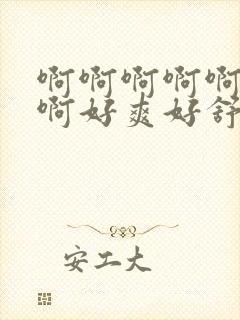 啊啊啊啊啊
啊好爽好舒
安工大